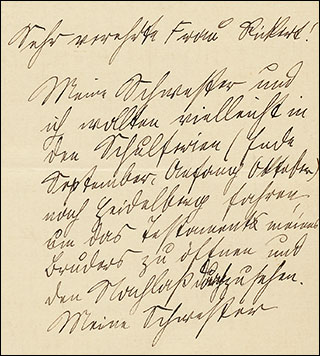 Sehr verehrte Frau Rickert!
Meine Schwester und
ich wollten vielleicht in
den Schulferien (Ende
September, Anfang Oktober)
nach Heidelberg fahren
um das Testament meines
Bruders zu öffnen und
den Nachlaß durchzusehen.
Meine Schwester